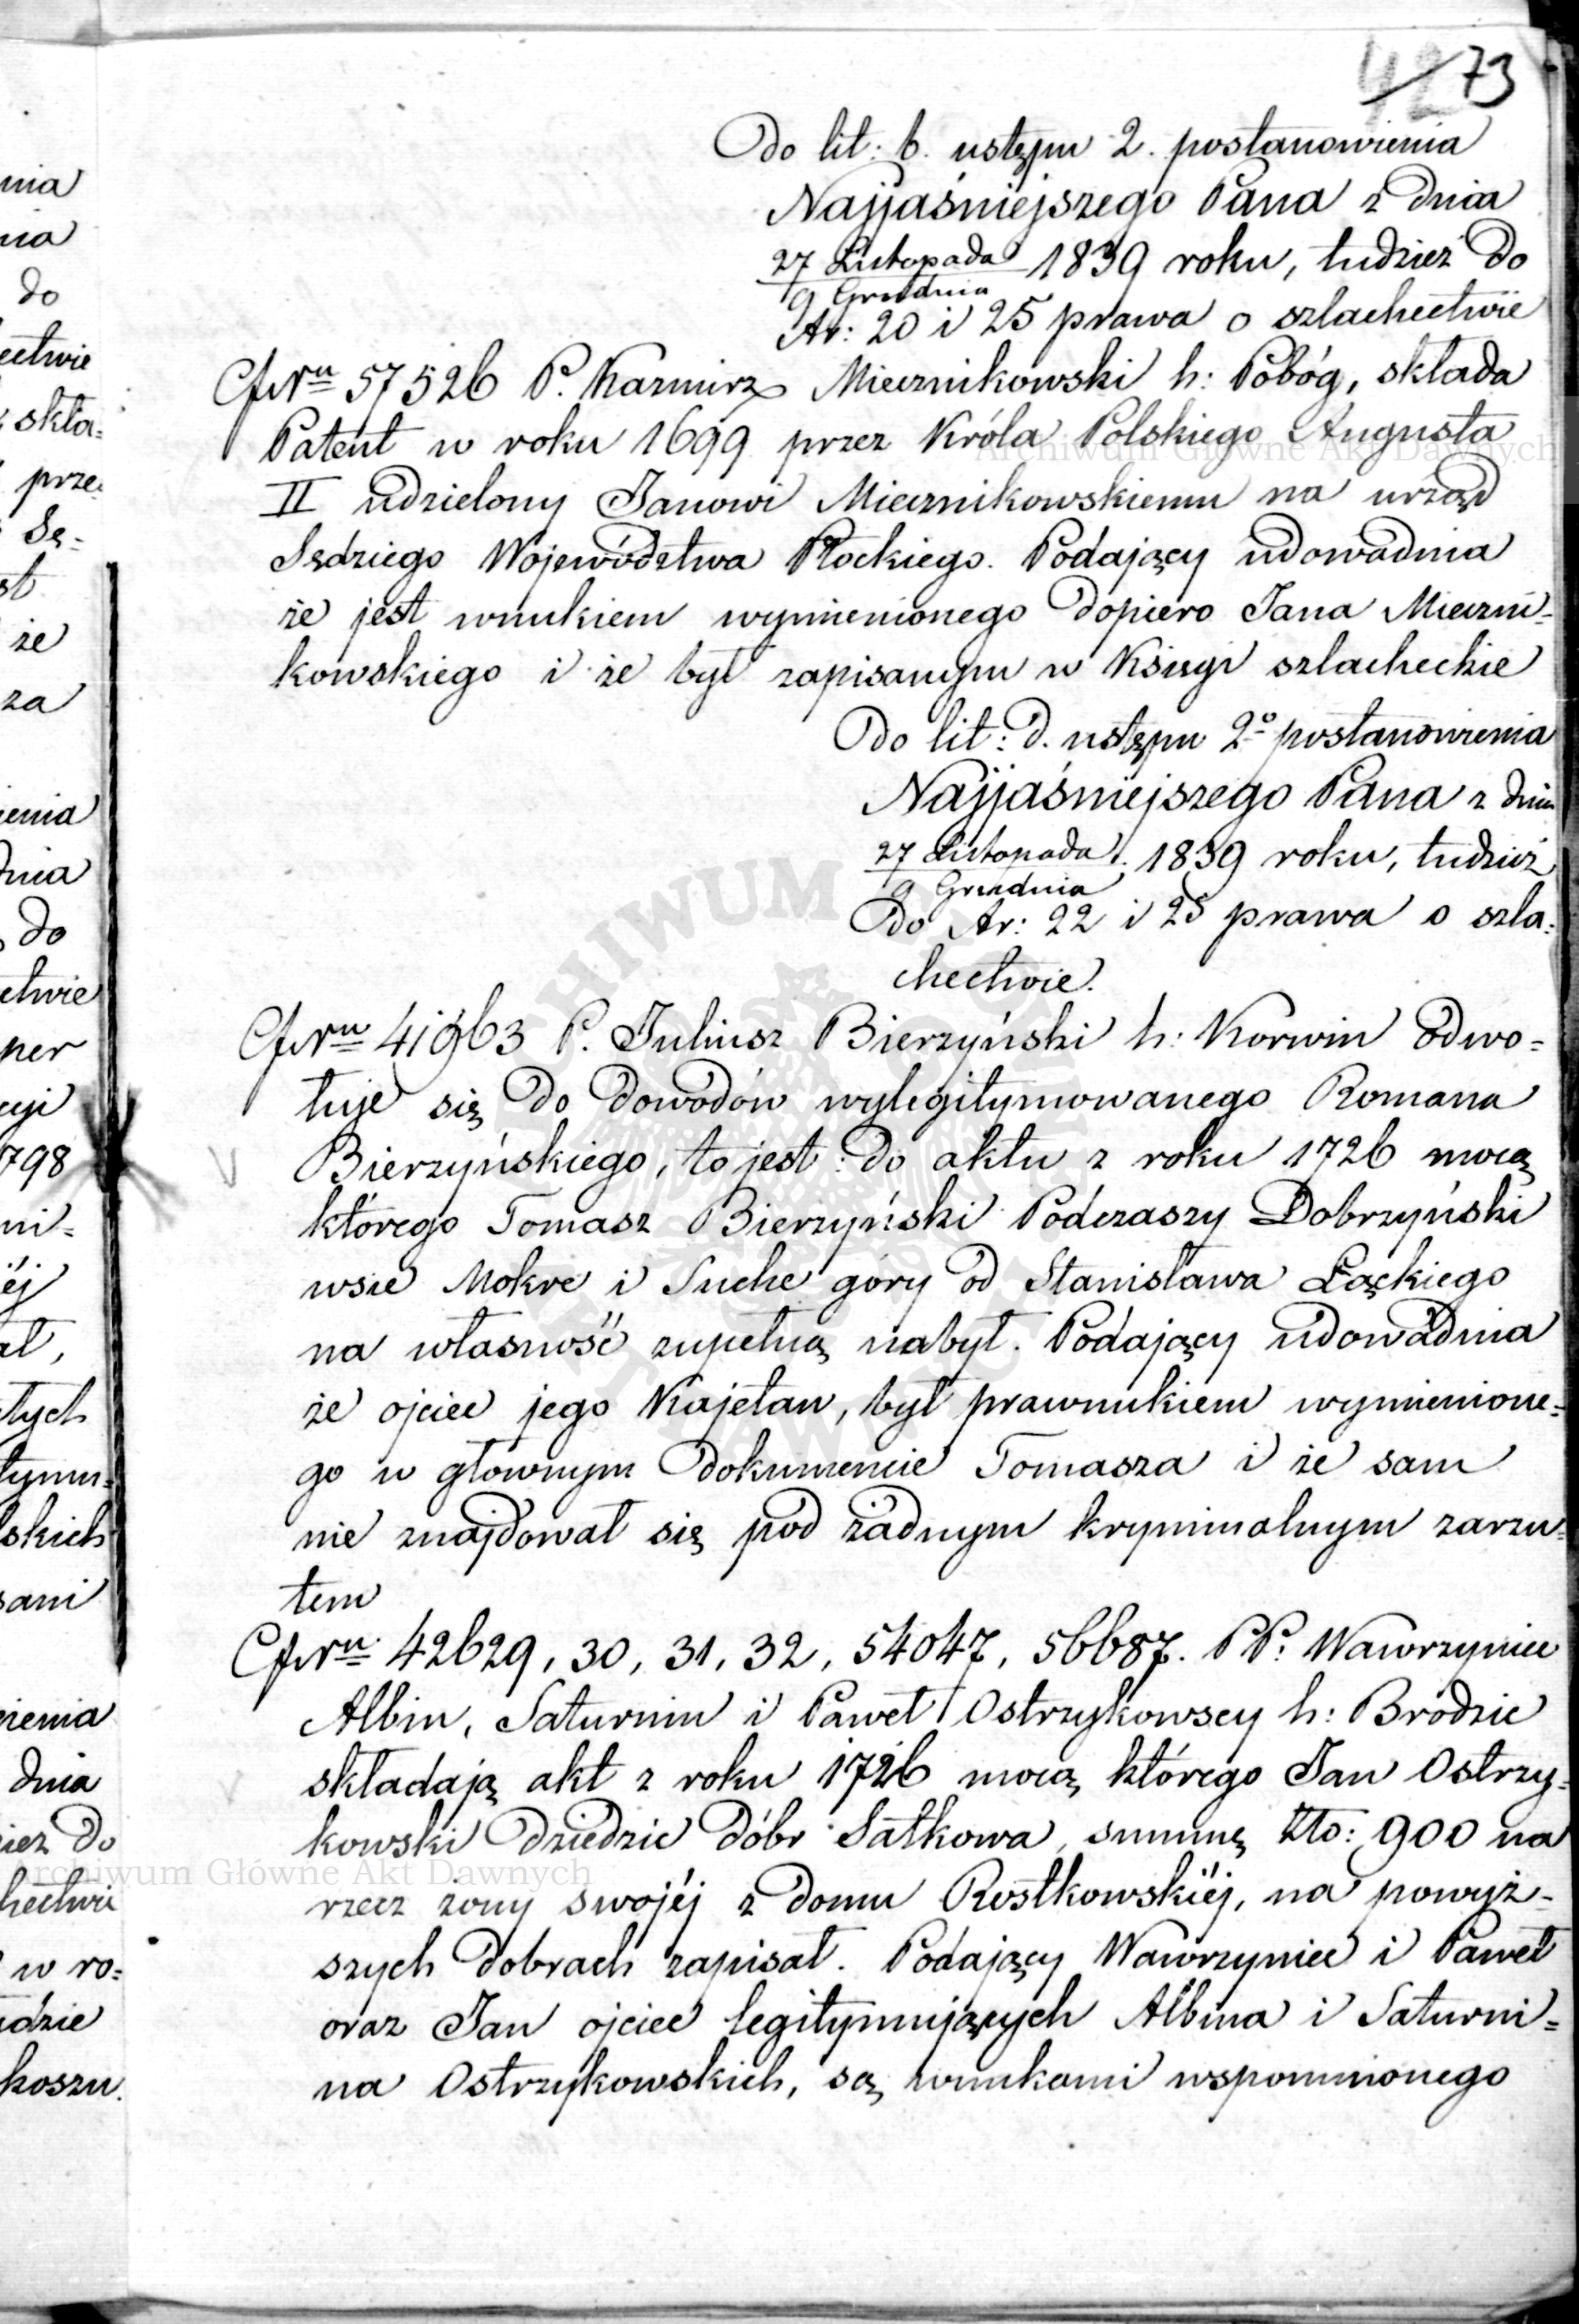 42 73
Do lit: b. ustępu 2. postanowienia
Najjaśniejszego Pana z dnia
27 Listopada / 9 Grudnia 1839 roku, tudzież do
Ar: 20 i 25 prawa o szlachectwie
57526 P. Kazmirz Miecznikowski h: Pobóg, składa
Patent w roku 1699 przez Króla Polskiego Augusta
II udzielony Janowi Miecznikowskiemu na urząd
Sędziego Województwa Płockiego. Podający udowadnia
że jest wnukiem wymienionego dopiero Jana Mieczni-
kowskiego i że był zapisanym w Księgi szlacheckie
Do lit: d. ustępu 2o postanowienia
Najjaśniejszego Pana z dnia
27 Listopada / 9 Grudnia 1839 roku, tudzież
Do Ar: 22 i 25 prawa o szla=
chectwie.
41963 P. Juliusz Bierzyński h: Korwin odwo=
łuje się do dowodów wylegitymowanego Romana
Bierzyńskiego, to jest: do aktu z roku 1726 mocą
którego Tomasz Bierzyński Podczaszy Dobrzyński
wsie Mokre i Suche góry od Stanisława Łąckiego
na własność zupełną nabył. Podający udowadnia
że ojciec jego Kajetan, był prawnukiem wymienione=
go w głównym dokumencie Tomasza i że sam
nie znajdował się pod żadnym kryminalnym zarzu=
tem
42629, 30, 31, 32, 54047, 56687. PP. Wawrzyniec
Albin, Saturnin i Paweł Ostrzykowscy h: Brodzic
składają akt z roku 1726 mocą którego Jan Ostrzy=
kowski dziedzic dóbr Sałkowa, summę Zło: 900 na
rzecz żony swojéj z domu Rostkowskiéj, na powyż=
szych dobrach zapisał. Podający Wawrzyniec i Paweł
oraz Jan ojciec legitymujących Albina i Saturni=
na Ostrzykowskich, są wnukami wspomnionego
Archiwum Główne Akt Dawnych
Archiwum Główne Akt Dawnych